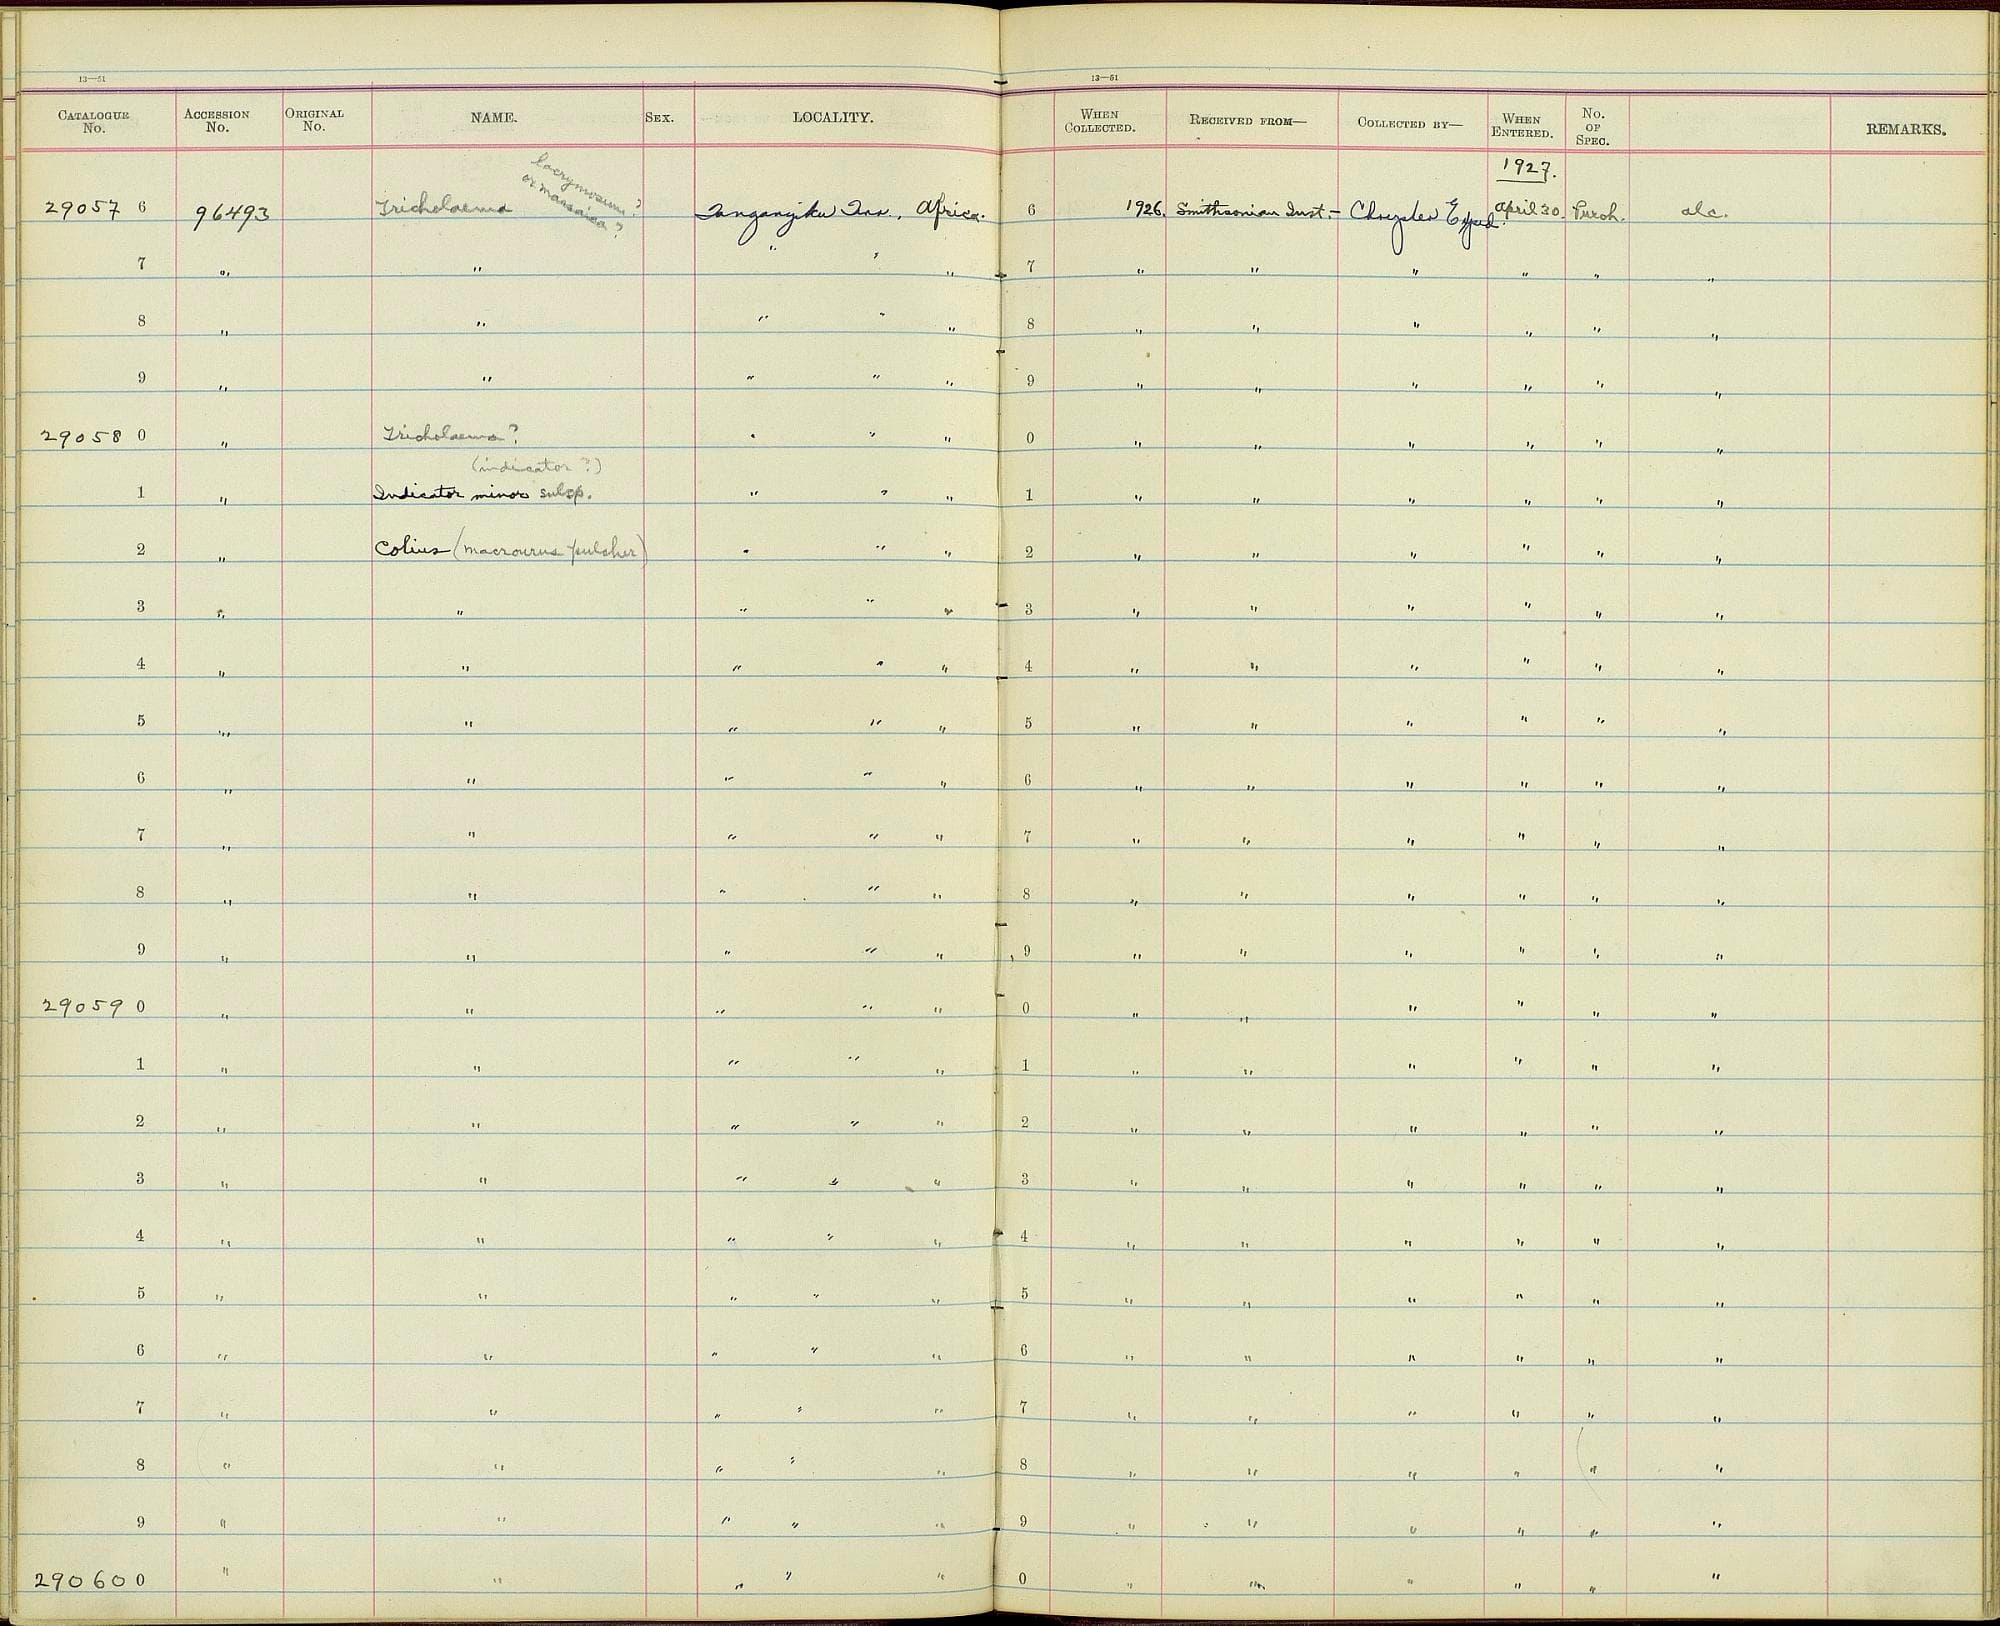 13—51
CATALOGUE No. ACCESSION No. ORIGINAL No. NAME. SEX. LOCALITY.
lacrymosum?
or massaica?
29057 6 96493 Tricholaema Tanganyika Terr., Africa.
7 " " " " "
8 " " " " "
9 " " " " "
29058 0 " Tricholaema? " " "
(indicator?)
1 " Indicator minor subsp. " " "
2 " Colius (macrourus pulcher) " " "
3 " " " " "
4 " " " " "
5 " " " " "
6 " " " " "
7 " " " " "
8 " " " " "
9 " " " " "
29059 0 " " " " "
1 " " " " "
2 " " " " "
3 " " " " "
4 " " " " "
5 " " " " "
6 " " " " "
7 " " " " "
8 " " " " "
9 " " " " "
29060 0 " " " " "
13—51
WHEN COLLECTED. RECEIVED FROM— COLLECTED BY— WHEN ENTERED. No. OF SPEC. REMARKS.
1927.
6 1926. Smithsonian Inst.— Chrysler Exped. April 30. alc.
7 " " " " " "
8 " " " " " "
9 " " " " " "
0 " " " " " "
1 " " " " " "
2 " " " " " "
3 " " " " " "
4 " " " " " "
5 " " " " " "
6 " " " " " "
7 " " " " " "
8 " " " " " "
9 " " " " " "
0 " " " " " "
1 " " " " " "
2 " " " " " "
3 " " " " " "
4 " " " " " "
5 " " " " " "
6 " " " " " "
7 " " " " " "
8 " " " " " "
9 " " " " " "
0 " " " " " "